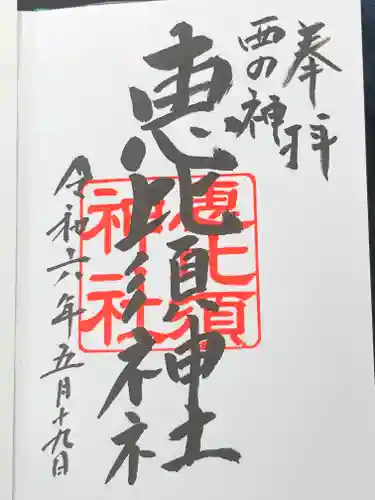 奉拝
西の神
恵比須神社
令和六年五月十九日
恵比須
神社